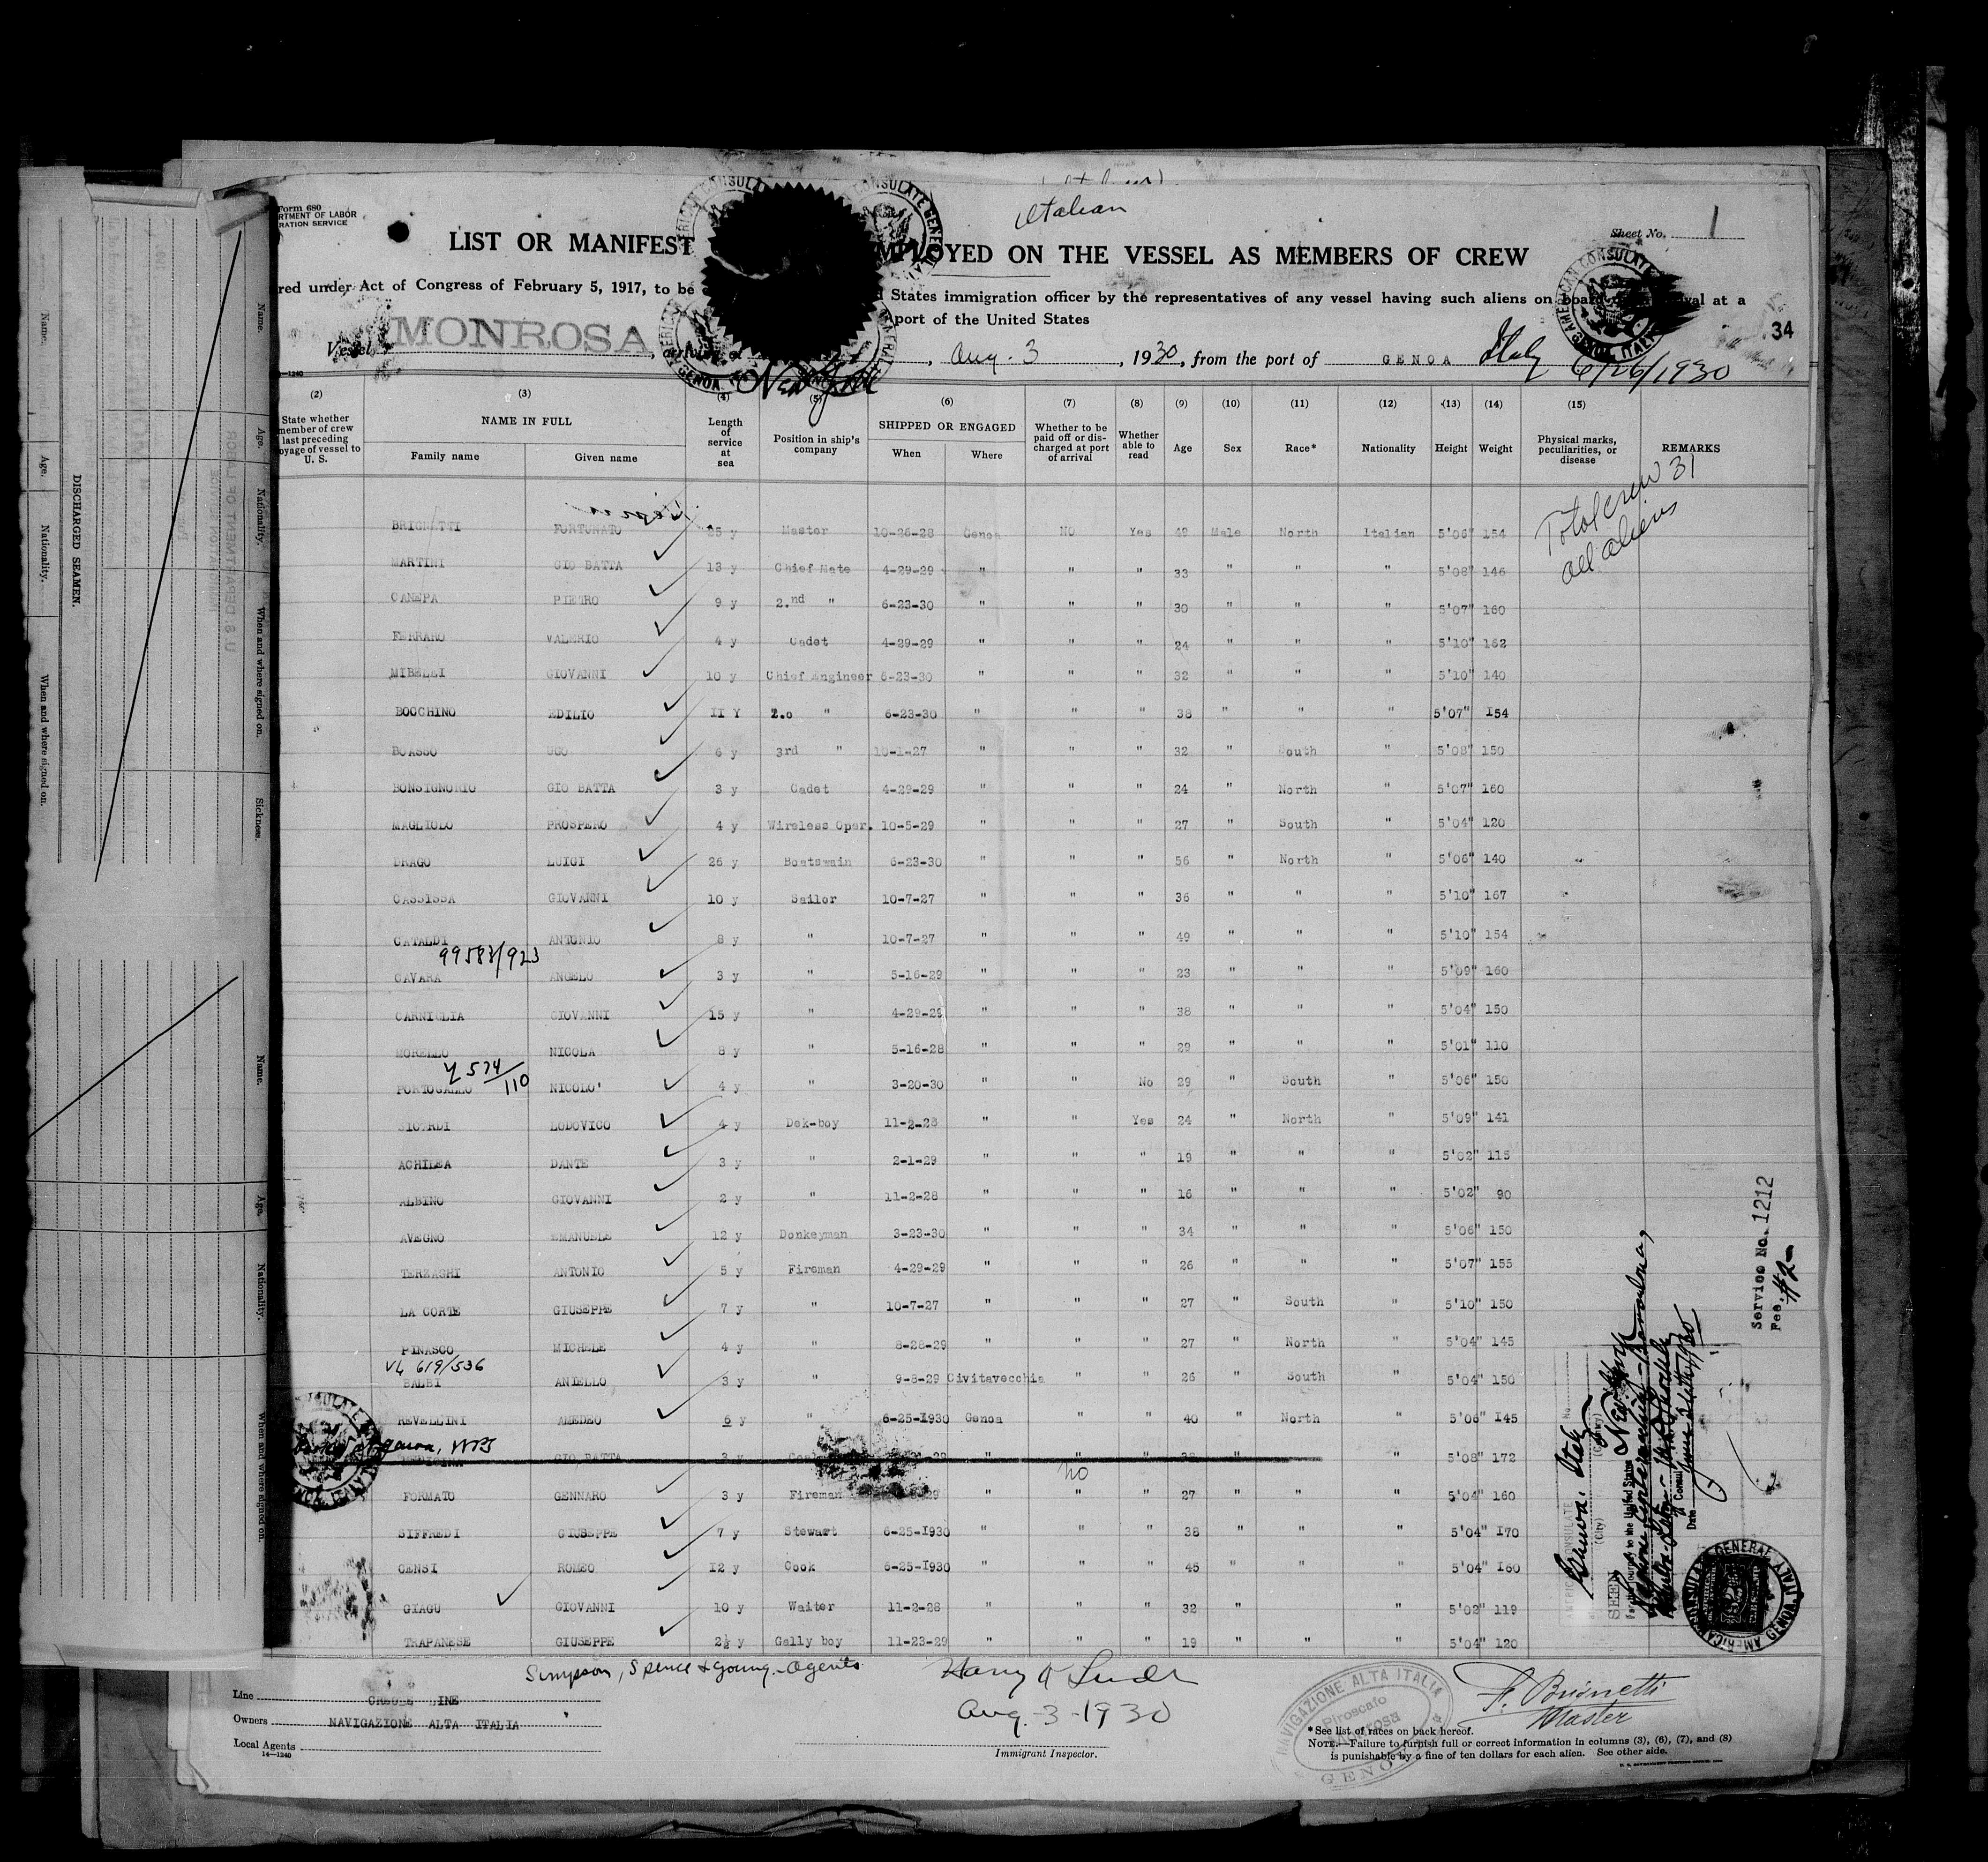 Italian
Form 680
RTMENT OF LABOR
RATION SERVICE
Sheet No. 1
LIST OR MANIFEST MPLOYED ON THE VESSEL AS MEMBERS OF CREW
red under Act of Congress of February 5, 1917, to be States immigration officer by the representatives of any vessel having such aliens on board val at a
port of the United States
34
Vessel MONROSA, arriving at New York, Aug. 3, 1930, from the port of GENOA Italy 6/26/1930
14—1240
(2) (3) (4) (5) (6) (7) (8) (9) (10) (11) (12) (13) (14) (15)
State whether member of crew last preceding oyage of vessel to U. S.
NAME IN FULL
Family name Given name
Length of service at sea
Position in ship's company
SHIPPED OR ENGAGED
When Where
Whether to be paid off or discharged at port of arrival
Whether able to read
Age Sex Race* Nationality Height Weight
Physical marks, peculiarities, or disease
REMARKS
Total crew 31
all aliens
BRIGNETTI FORTUNATO 25 y Master 10-26-28 Genoa NO Yes 49 Male North Italian 5'06" 154
MARTINI GIO BATTA 13 y Chief Mate 4-29-29 " " " 33 " " " 5'08" 146
CANEPA PIETRO 9 y 2.nd " 6-23-30 " " " 30 " " " 5'07" 160
FERRARO VALERIO 4 y Cadet 4-29-29 " " " 24 " " " 5'10" 162
MIBELLI GIOVANNI 10 y Chief Engineer 6-23-30 " " " 32 " " " 5'10" 140
BOCCHINO EDILIO II Y 2.o " 6-23-30 " " " 38 " " " 5'07" I54
BOASSO UGO 6 y 3rd " 10-1-27 " " " 32 " South " 5'08" 150
BONSIGNORIO GIO BATTA 3 y Cadet 4-29-29 " " " 24 " North " 5'07" 160
MAGLIOLO PROSPERO 4 y Wireless Oper. 10-5-29 " " " 27 " South " 5'04" 120
DRAGO LUIGI 26 y Boatswain 6-23-30 " " " 56 " North " 5'06" 140
CASSISSA GIOVANNI 10 y Sailor 10-7-27 " " " 36 " " " 5'10" 167
CATALDI ANTONIO 8 y " 10-7-27 " " " 49 " " " 5'10" 154
99583/923
CAVARA ANGELO 3 y " 5-16-29 " " " 23 " " " 5'09" 160
CARNIGLIA GIOVANNI 15 y " 4-29-29 " " " 38 " " " 5'04" 150
MORELLO NICOLA 8 y " 5-16-28 " " " 29 " " " 5'01" 110
4574/110
PORTOGALLO NICOLO' 4 y " 3-20-30 " " No 29 " South " 5'06" 150
SICARDI LODOVICO 4 y Dek-boy 11-2-28 " " Yes 24 " North " 5'09" 141
ACHILEA DANTE 3 y " 2-1-29 " " " 19 " " " 5'02" 115
ALBINO GIOVANNI 2 y " 11-2-28 " " " 16 " " " 5'02" 90
AVEGNO EMANUELE 12 y Donkeyman 3-23-30 " " " 34 " " " 5'06" 150
TERZAGHI ANTONIO 5 y Fireman 4-29-29 " " " 26 " " " 5'07" 155
LA CORTE GIUSEPPE 7 y " 10-7-27 " " " 27 " South " 5'10" 150
PINASCO MICHELE 4 y " 8-28-29 " " " 27 " North " 5'04" 145
VL 619/536
BALBI ANIELLO 3 y " 9-8-29 Civitavecchia " " 26 " South " 5'04" 150
REVELLINI AMEDEO 6 y " 6-25-1930 Genoa " " 40 " North " 5'06" I45
GIO BATTA 3 y " " " 38 " " 5'08" 172
no
FORMATO GENNARO 3 y Fireman " " " 27 " " " 5'04" 160
SIFFREDI GIUSEPPE 7 y Stewart 6-25-I930 " " " 38 " " " 5'04" I70
CENSI ROMEO I2 y Cook 6-25-I930 " " " 45 " " " 5'04" I60
GIAGU GIOVANNI 10 y Waiter 11-2-28 " " " 32 " " 5'02" 119
TRAPANESE GIUSEPPE 2½ y Gally boy 11-23-29 " " " 19 " " " 5'04" 120
Simpson, Spence & Young - Agents
Line
Owners NAVIGAZIONE ALTA ITALIA
Local Agents
14—1240
Aug. 3-1930
Immigrant Inspector.
NAVIGAZIONE ALTA ITALIA
Piroscafo
GENOVA
F. Brignetti
Master
*See list of races on back hereof.
NOTE.—Failure to furnish full or correct information in columns (3), (6), (7), and (8)
is punishable by a fine of ten dollars for each alien. See other side.
Service No. 1212
Fee. #2-
Genoa, Italy
(City) (Country)
SEEN
For the journey to the United States
New York
Date June 26th, 1930
AMERICAN CONSULATE GENERAL GENOA, ITALY
DISCHARGED SEAMEN.
Name. Age. Nationality. When and where signed on.
U. S. DEPARTMENT OF LABOR
Name. Age. Nationality. When and where signed on. Sickness.
Name. Age. Nationality. When and where signed on.